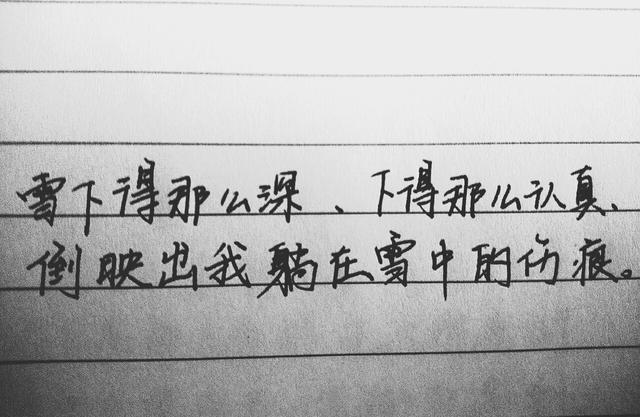 雪下得那么深、下得那么认真、
倒映出我躺在雪中的伤痕。